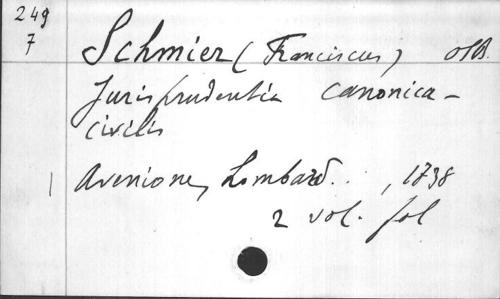 249
7
Schmier (Franciscus) OSB.
Jurisprudentia canonica-
civilis
Avenione, Lombard..., 1738
2 vol. fol